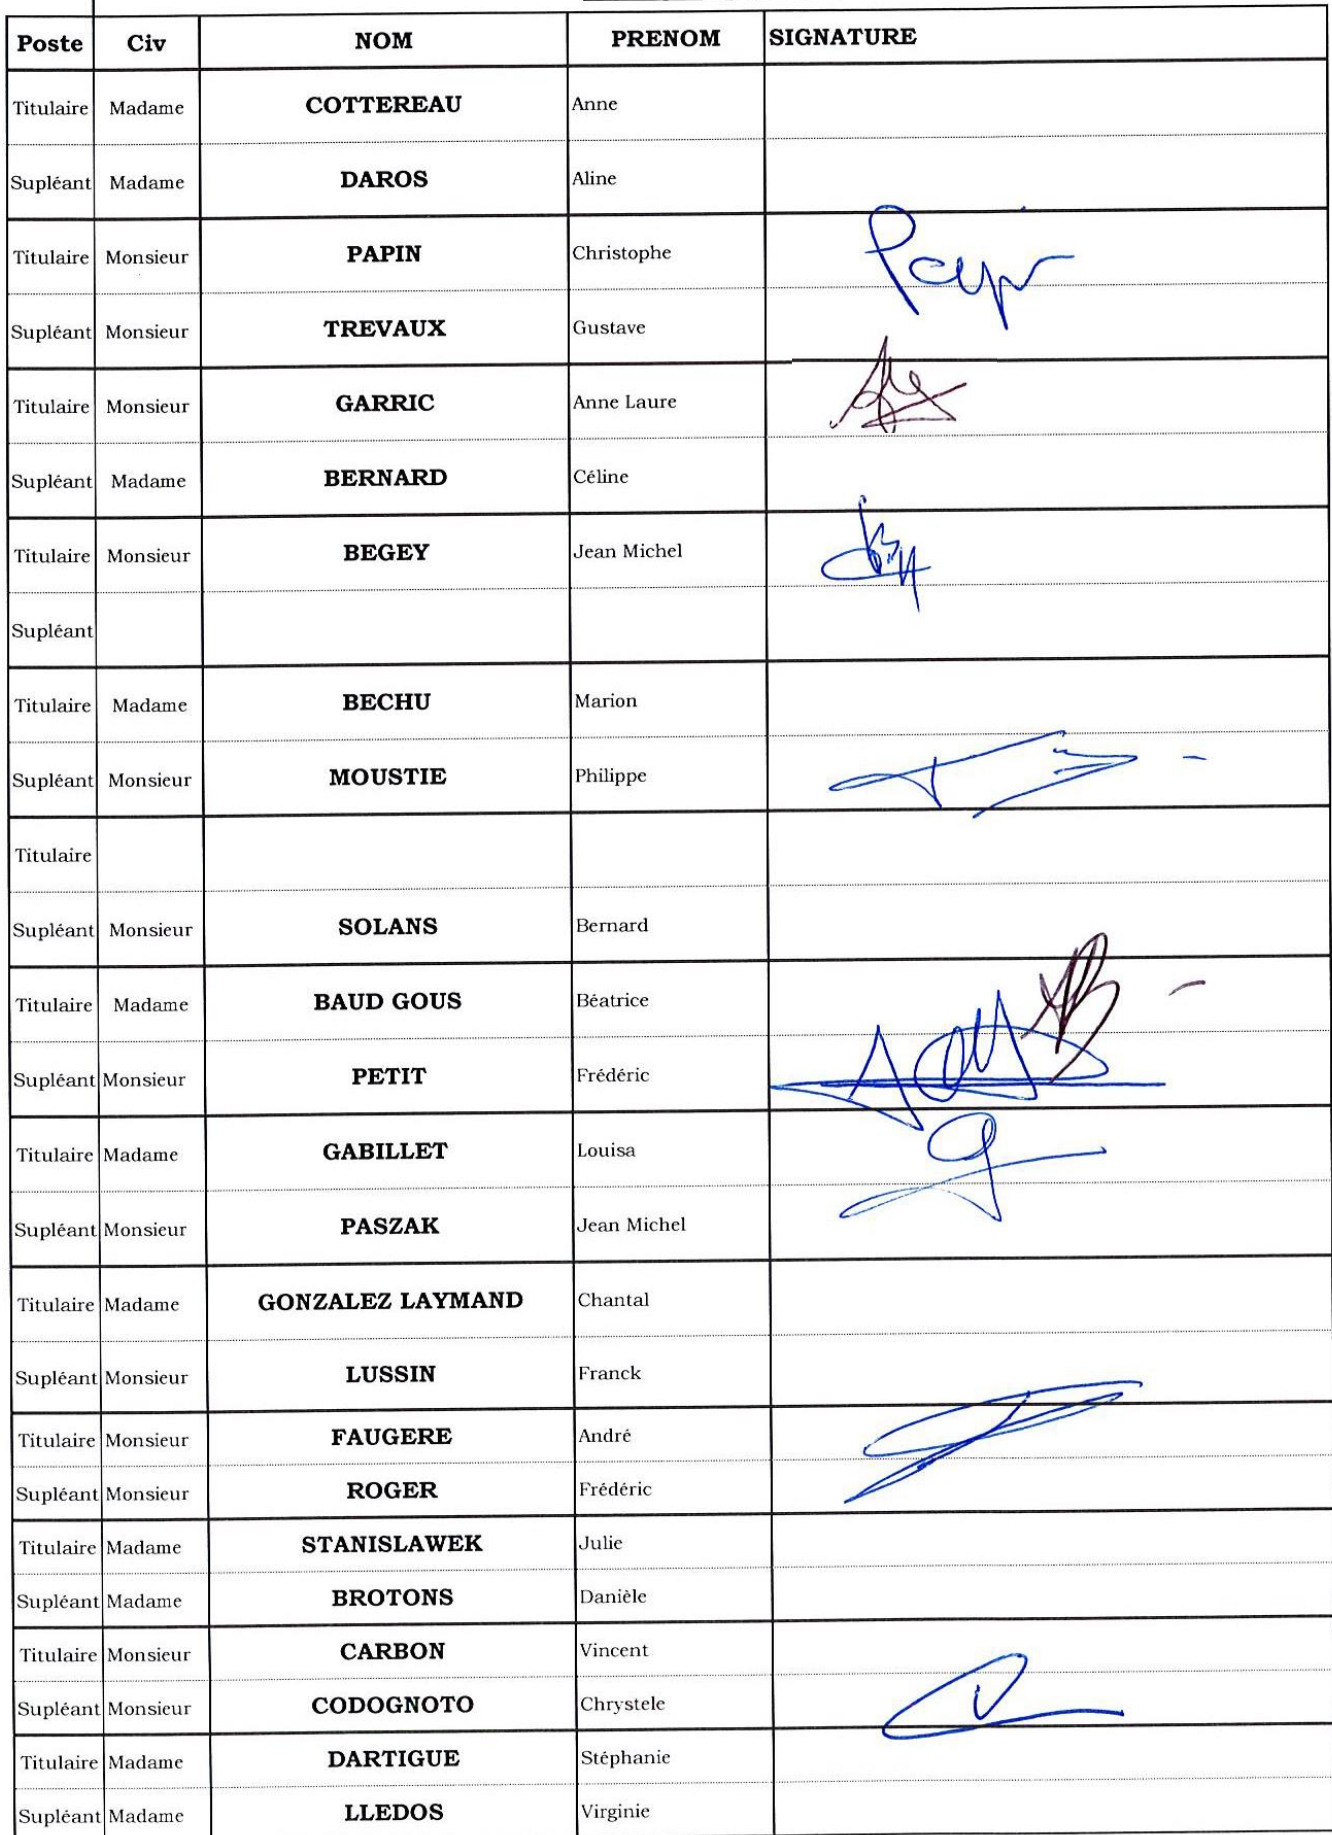 Poste Civ NOM PRENOM SIGNATURE
Titulaire Madame COTTEREAU Anne
Supléant Madame DAROS Aline
Titulaire Monsieur PAPIN Christophe Papin
Supléant Monsieur TREVAUX Gustave
Titulaire Monsieur GARRIC Anne Laure
Supléant Madame BERNARD Céline
Titulaire Monsieur BEGEY Jean Michel
Supléant
Titulaire Madame BECHU Marion
Supléant Monsieur MOUSTIE Philippe
Titulaire
Supléant Monsieur SOLANS Bernard
Titulaire Madame BAUD GOUS Béatrice
Supléant Monsieur PETIT Frédéric
Titulaire Madame GABILLET Louisa
Supléant Monsieur PASZAK Jean Michel
Titulaire Madame GONZALEZ LAYMAND Chantal
Supléant Monsieur LUSSIN Franck
Titulaire Monsieur FAUGERE André
Supléant Monsieur ROGER Frédéric
Titulaire Madame STANISLAWEK Julie
Supléant Madame BROTONS Danièle
Titulaire Monsieur CARBON Vincent
Supléant Monsieur CODOGNOTO Chrystele
Titulaire Madame DARTIGUE Stéphanie
Supléant Madame LLEDOS Virginie